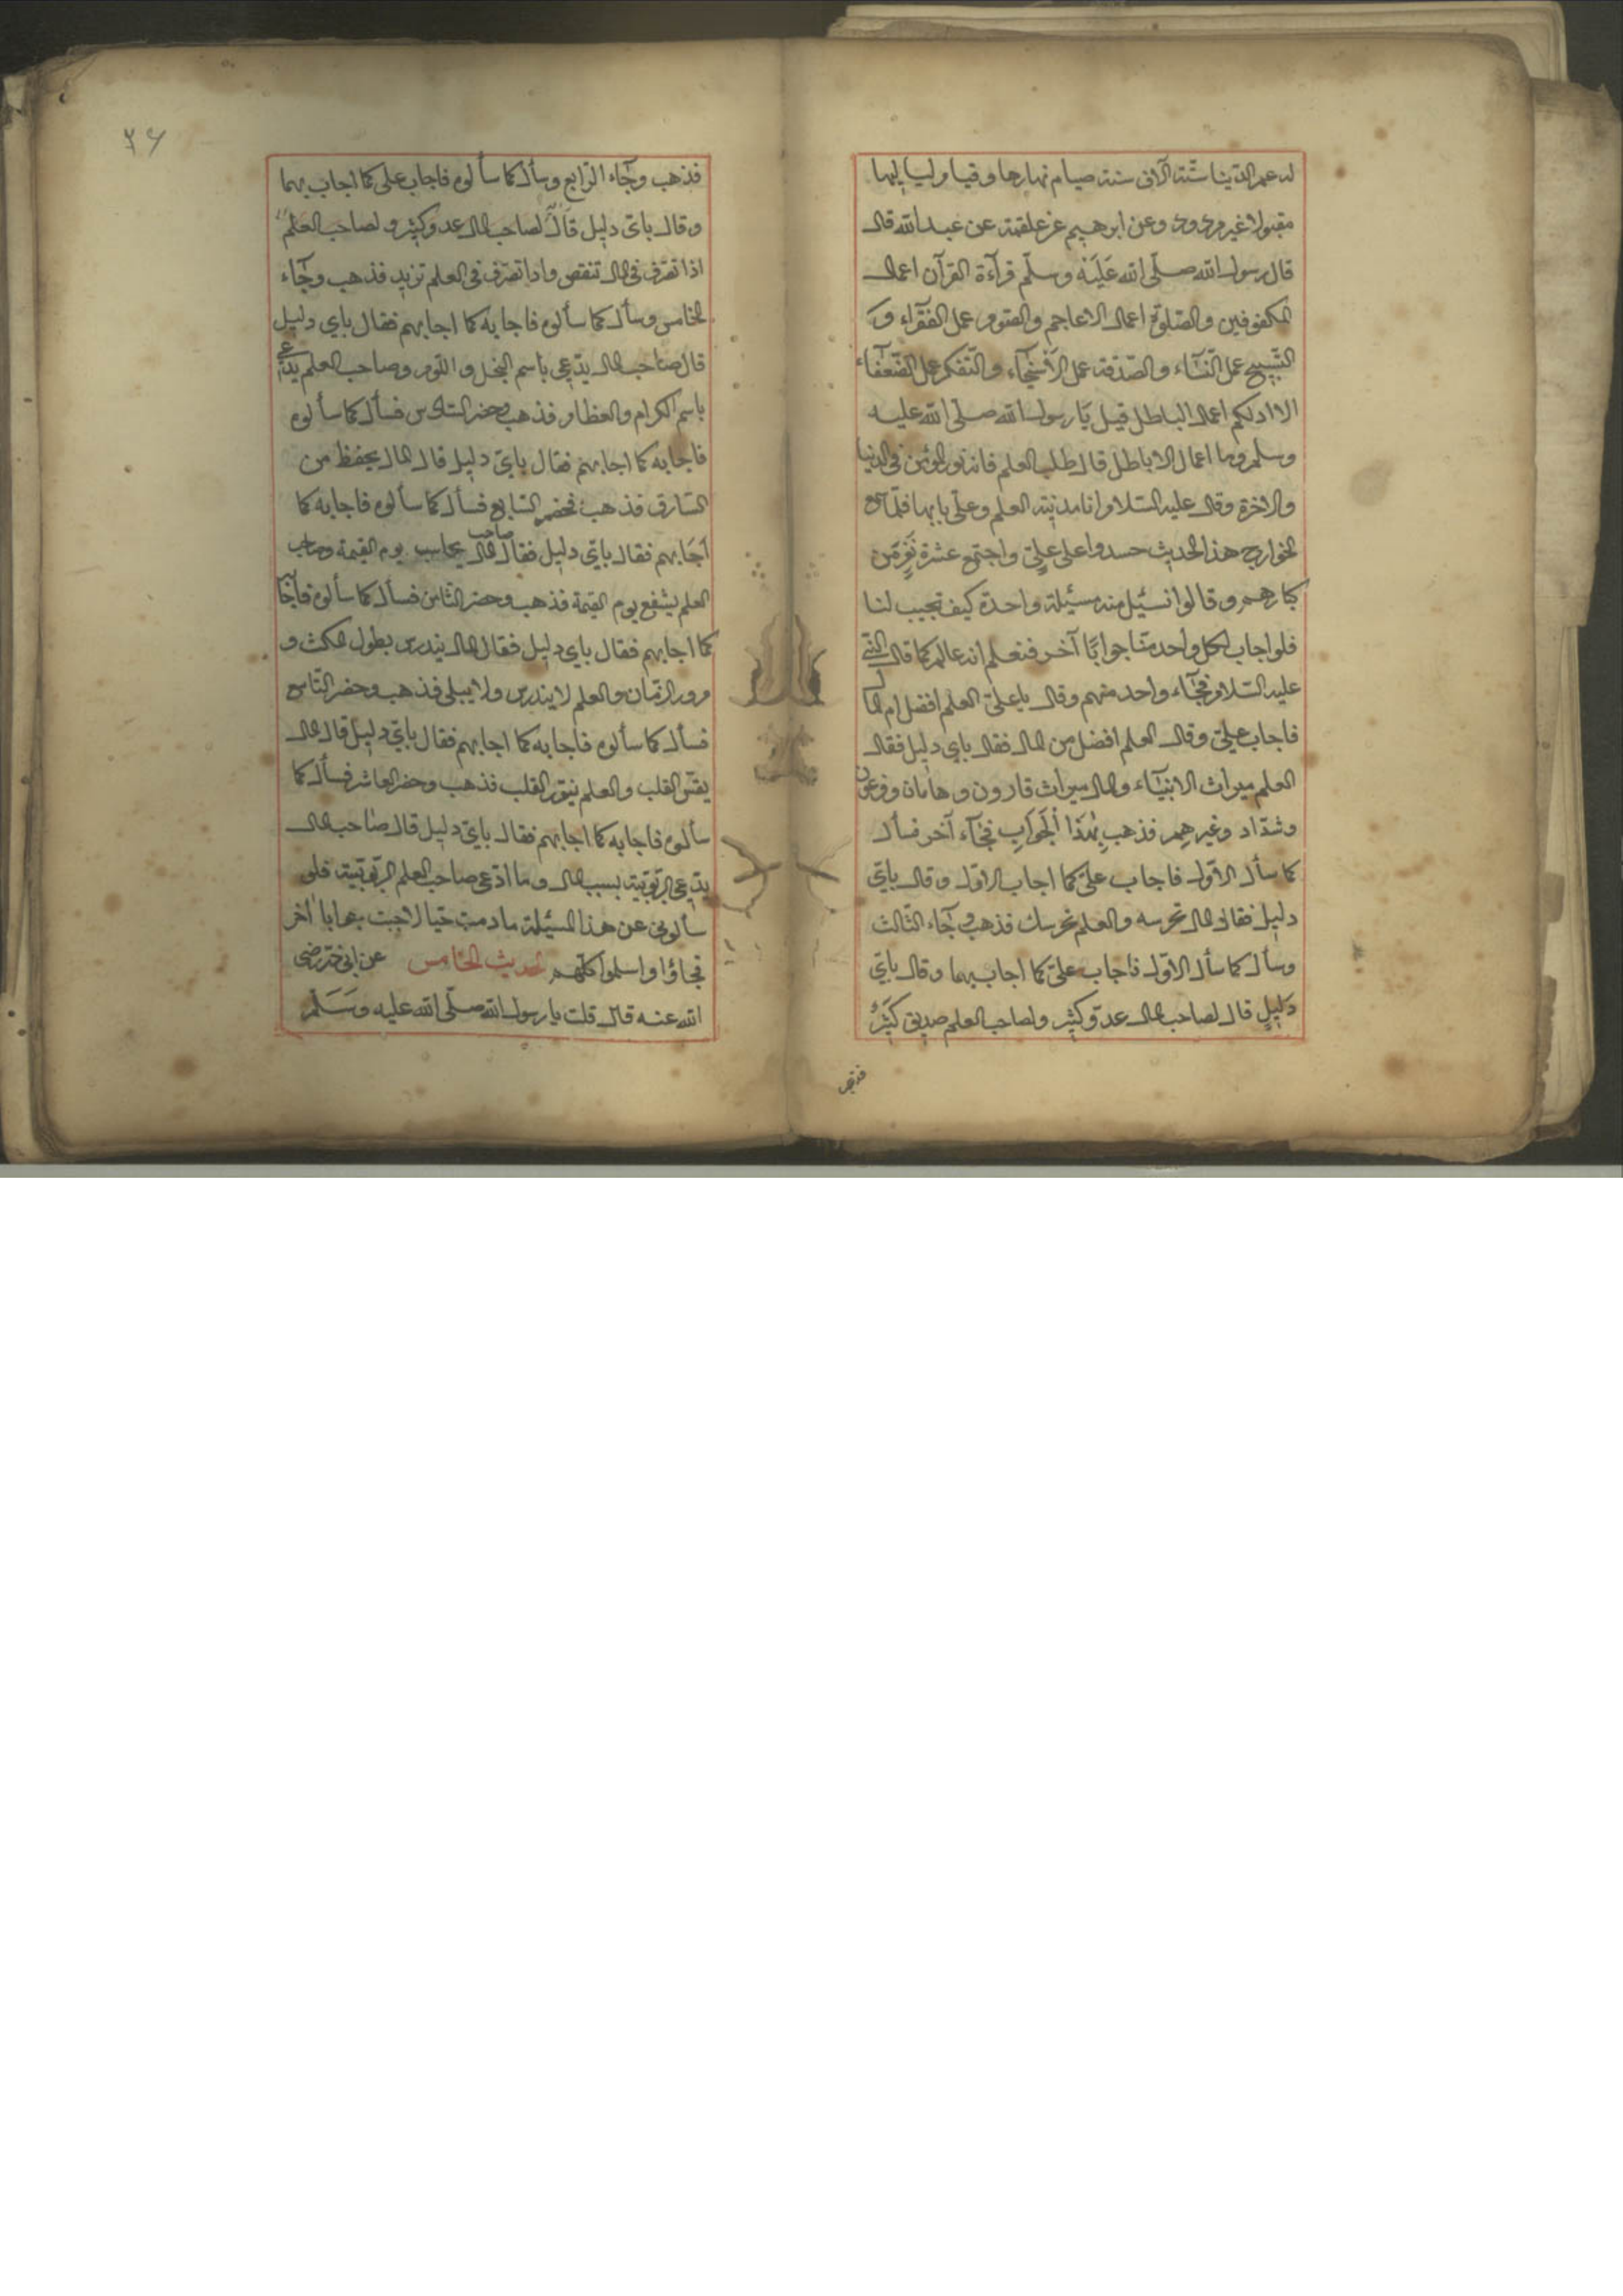 له عمر الدنيا ستة آلاف سنة صيام نهارها وقيام لياليها
مقبولا غير مردود وعن ابرهيم عن علقمة عن عبد الله قال
قال رسول الله صلّى الله عَلَيْه وسلّم قرآءة القرآن اعمال
المكفوفين والصّلوة اعمال الاعاجم والصّوم عمل الفقرآء و
التّسبيح عمل النّسآء والصّدقة عمل الأسْخيآء والتّفكر عمل الضّعفآء
الا ادلكم اعمال الباطل قيل يَا رسول الله صلّى الله عليه
وسلم وما اعمال الاباطل قال طلب العلم فانه نور المؤمن فى الدنيا
والاخرة وقال عليه السّلام انا مدينة العلم وعلىّ بابها فلمّا سمع
الخوارج هذا الحديث حسدوا على علىّ واجتمع عشرة نَفَرٍ من
كبارهم وقالوا نسئل منه مسئلة واحدة كيف تجيب لنا
فلو اجاب لكل واحد منّا جوابًا آخر فنعلم انه عالم كما قال النّبى
عليه السّلام فجآء واحد منهم وقال يا علىّ العلم افضل ام المال
فاجاب علىّ وقال العلم افضل من المال فقال باي دليل فقال
العلم ميراث الانبيآء والمال ميراث قارون وهامان وفرعون
وشدّاد وغيرهِم فذهب بِهٰذَا الجَوَابِ فجآء آخر فسأل
كما سأل الاوّل فاجاب علىّ كما اجاب الاوّل وقال باىّ
دليل فقال المال تحرسه والعلم يحرسك فذهب وجآء الثّالث
وسأل كما سأل الاوّل فاجاب علىّ كما اجاب بهما وقال باىّ
دَلِيلٍ قال لصاحب المال عدوّ كثير ولصاحب العلم صديق كَثِيرٌ
فذهب
٣٦
فذهب وجآء الرّابع وسأل كما سألوه فاجاب على كما اجاب بهما
وقال باىّ دليل قَالَ لصاحب المال عدو كثير ولصاحب العلم
اذا تصرّف فى المال تنقص واذا تصرّف فى العلم تزيد فذهب وجآء
الخامس وسأل كما سألوه فاجابه كما اجابهم فقال باي دليل
قال صاحب المال يدّعى باسم البخل واللّوم وصاحب العلم يدّعى
باسم الكرام والعظام فذهب وحضر السّادس فسأل كما سألوه
فاجابه كما اجابهم فقال باىّ دليل قال المال يحفظ من
السّارق فذهب فحضر السّابع فسأل كما سألوه فاجابه كما
أجَابهم فقال باىّ دليل فقال صاحب المال يحاسب يوم القيمة وصاحب
العلم يشفع يوم القيمة فذهب وحضر الثّامن فسأل كما سألوه فاجابه
كما اجابهم فقال باي دليل فقال المال يندرس بطول المكث و
مرور الزمان والعلم لا يندرس ولا يبلى فذهب وحضر التّاسع
فسأل كما سألوه فاجابه كما اجابهم فقال باىّ دليل قال المال
يقسّى القلب والعلم ينوّر القلب فذهب وحضر العاشر فسأل كما
سألوه فاجابه كما اجابهم فقال باىّ دليل قال صاحب المال
يدّعى الرّبوبيّة بسبب المال وما ادّعى صاحب العلم الرّبوبيّة فلو
سألونى عن هذا المسئلة ما دمت حيا لاجبت جوابا آخر
فجاؤا واسلموا كلّهم الحديث الخامس عن ابى ذر رضى
الله عنه قال قلت يا رسول الله صلّى الله عليه وَسَلّم